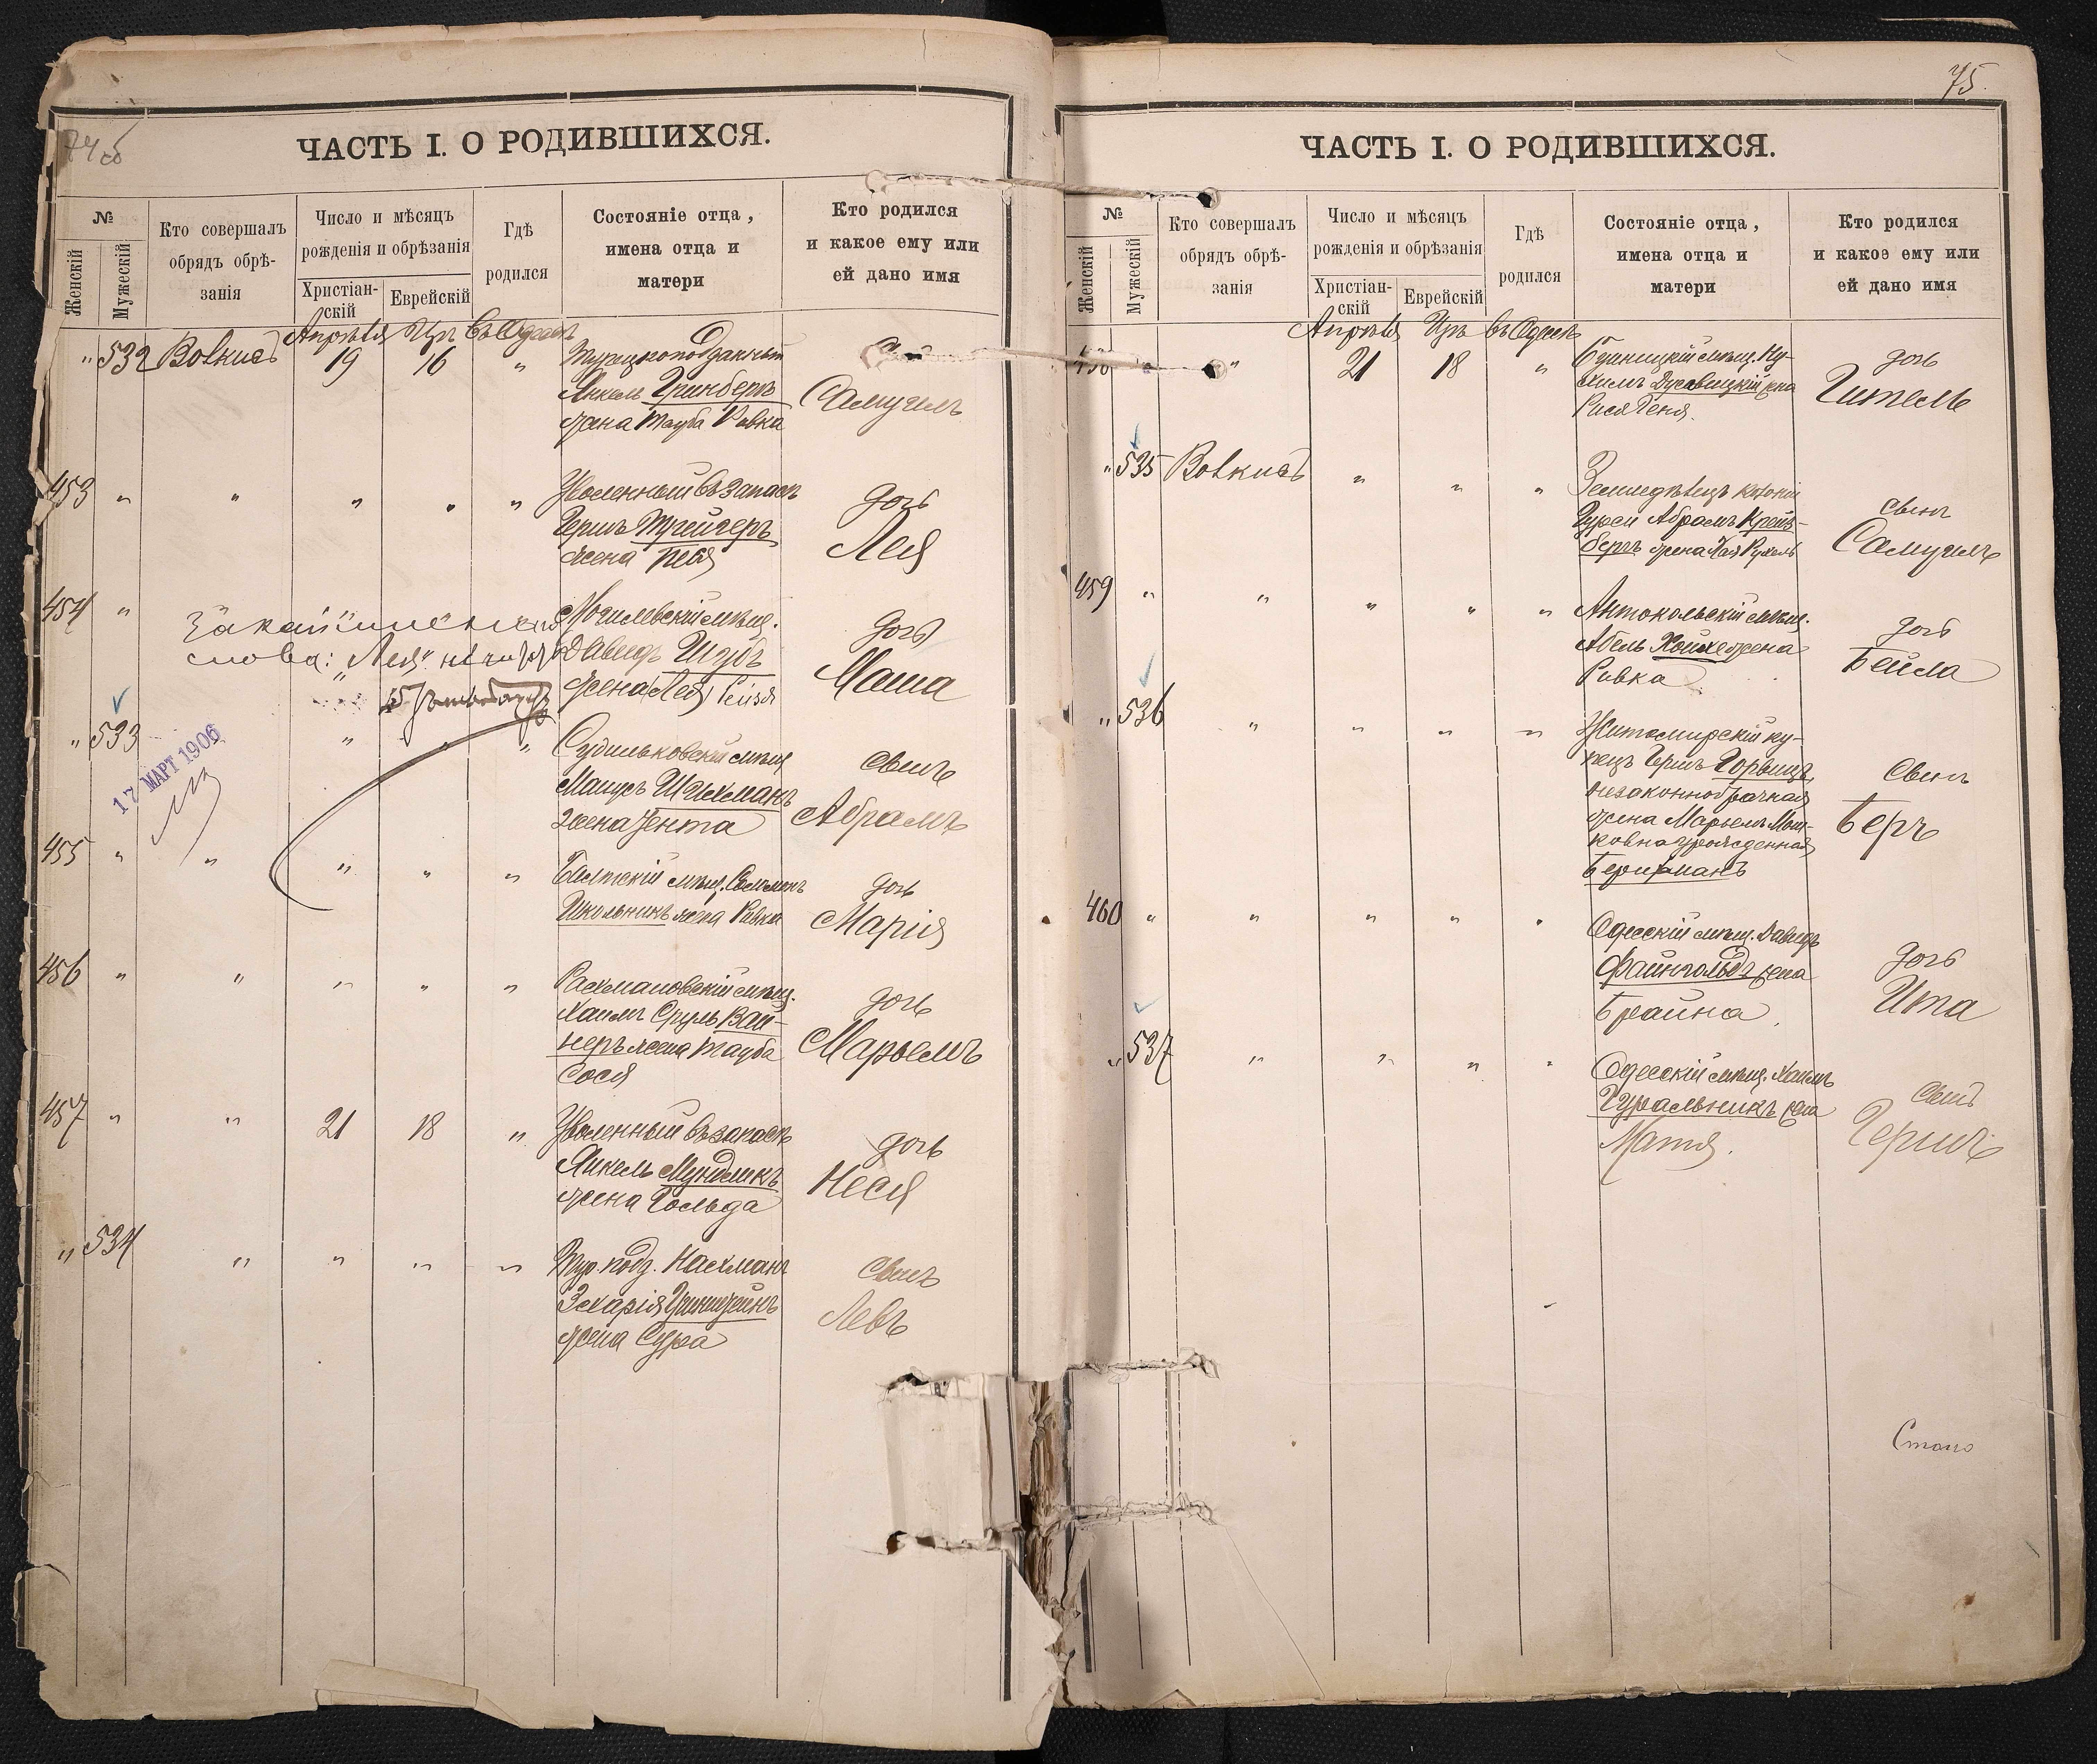 74 об
ЧАСТЬ I. О РОДИВШИХСЯ.
№
Женскій
Мужескій
Кто совершалъ
обрядъ обрѣ-
занія
Число и мѣсяцъ
рожденія и обрѣзанія
Христіан-
скій
Еврейскій
Гдѣ
родился
Состояніе отца,
имена отца и
матери
Кто родился
и какое ему или
ей дано имя
Апрѣля Иръ въ Одессѣ
" 532 Вовкисъ 19 16 " Турецкоподданный
Янкель Гринбергъ
жена Тауба Ривка
Самуилъ
453 " " " " " Уволенный въ запасъ
Гершъ Трейгеръ
жена Песя
дочь
Лея
454 " Могилевскій мѣщ.
Давидъ
жена (Лея) Рейзя
дочь
Маша
слова: "Лея" не читать
17 МАРТ 1906
" 533 " " " Судилковскій мѣщ
жена Ента
сынъ
Абрамъ
455 " " " " " Балтскій мѣщ.
Школьникъ жена Ривка
дочь
Марія
456 " " " " " Рахмановскій мѣщ.
Хаимъ Сруль Вай-
неръ жена Тауба
Сося
дочь
Марьемъ
457 " " 21 18 " Уволенный въ запасъ
Янкель Мундликъ
жена Гольда
дочь
Неся
" 534 " " " " Тур. подд. Нахманъ
Зехарія
жена Сура
сынъ
Левъ
75.
ЧАСТЬ I. О РОДИВШИХСЯ.
№
Женскій
Мужескій
Кто совершалъ
обрядъ обрѣ-
занія
Число и мѣсяцъ
рожденія и обрѣзанія
Христіан-
скій
Еврейскій
Гдѣ
родился
Состояніе отца,
имена отца и
матери
Кто родился
и какое ему или
ей дано имя
Апрѣля Иръ въ Одессѣ
" 21 18 " мѣщ. Ну-
химъ жена
Рися Геня.
дочь
Гитель
" 535 Вовкисъ " " " Земледѣлецъ колоніи
Абрамъ Крейз-
бергъ жена Хая Рухель
сынъ
Самуилъ
459 " " " " " Антокольскій мѣщ.
Абель жена
Ривка
дочь
Бейла
" 536 " " " " Житомирскій ку-
пецъ Гершъ Горвицъ,
незаконнобрачная
жена Марьемъ Мош-
ковна урожденная
сынъ
Беръ
460 " " " " " Одесскій мѣщ. Давидъ
Файнгольдъ жена
Брайна
дочь
Ита
" 537 " " " " Одесскій мѣщ. Хаимъ
Гуральникъ жена
Матя.
сынъ
Гершъ